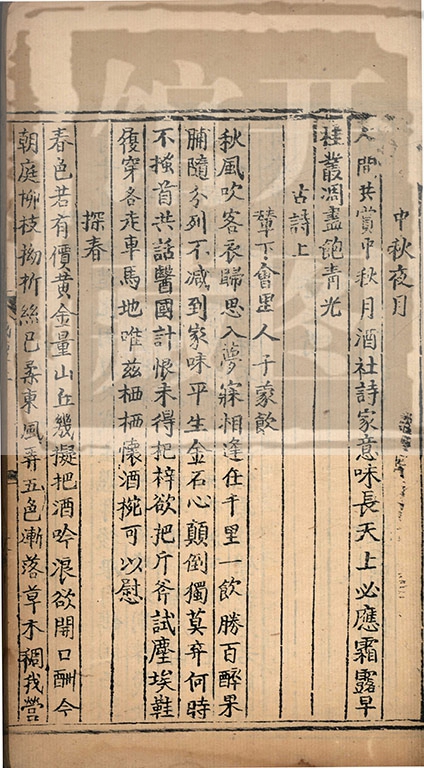 中秋夜月
人間共賞中秋月酒社詩家意味長天上必應霜露早
桂叢凋盡飽青光
古詩上
輦下會里人子蒙飲
秋風吹客衣歸思入夢寐相逢在千里一飲勝百醉果
脯隨分列不減到家味平生金石心顛倒獨莫弃何時
不搔首共話醫國計恨未得把梓欲把斤斧試塵埃鞋
復穿各走車馬地唯茲栖栖懷酒椀可以慰
探春
春色若有價黃金量山丘幾擬把酒吟浪欲開口酬今
朝庭柳枝拗折絲已柔東風弄五色漸落草木稠我營